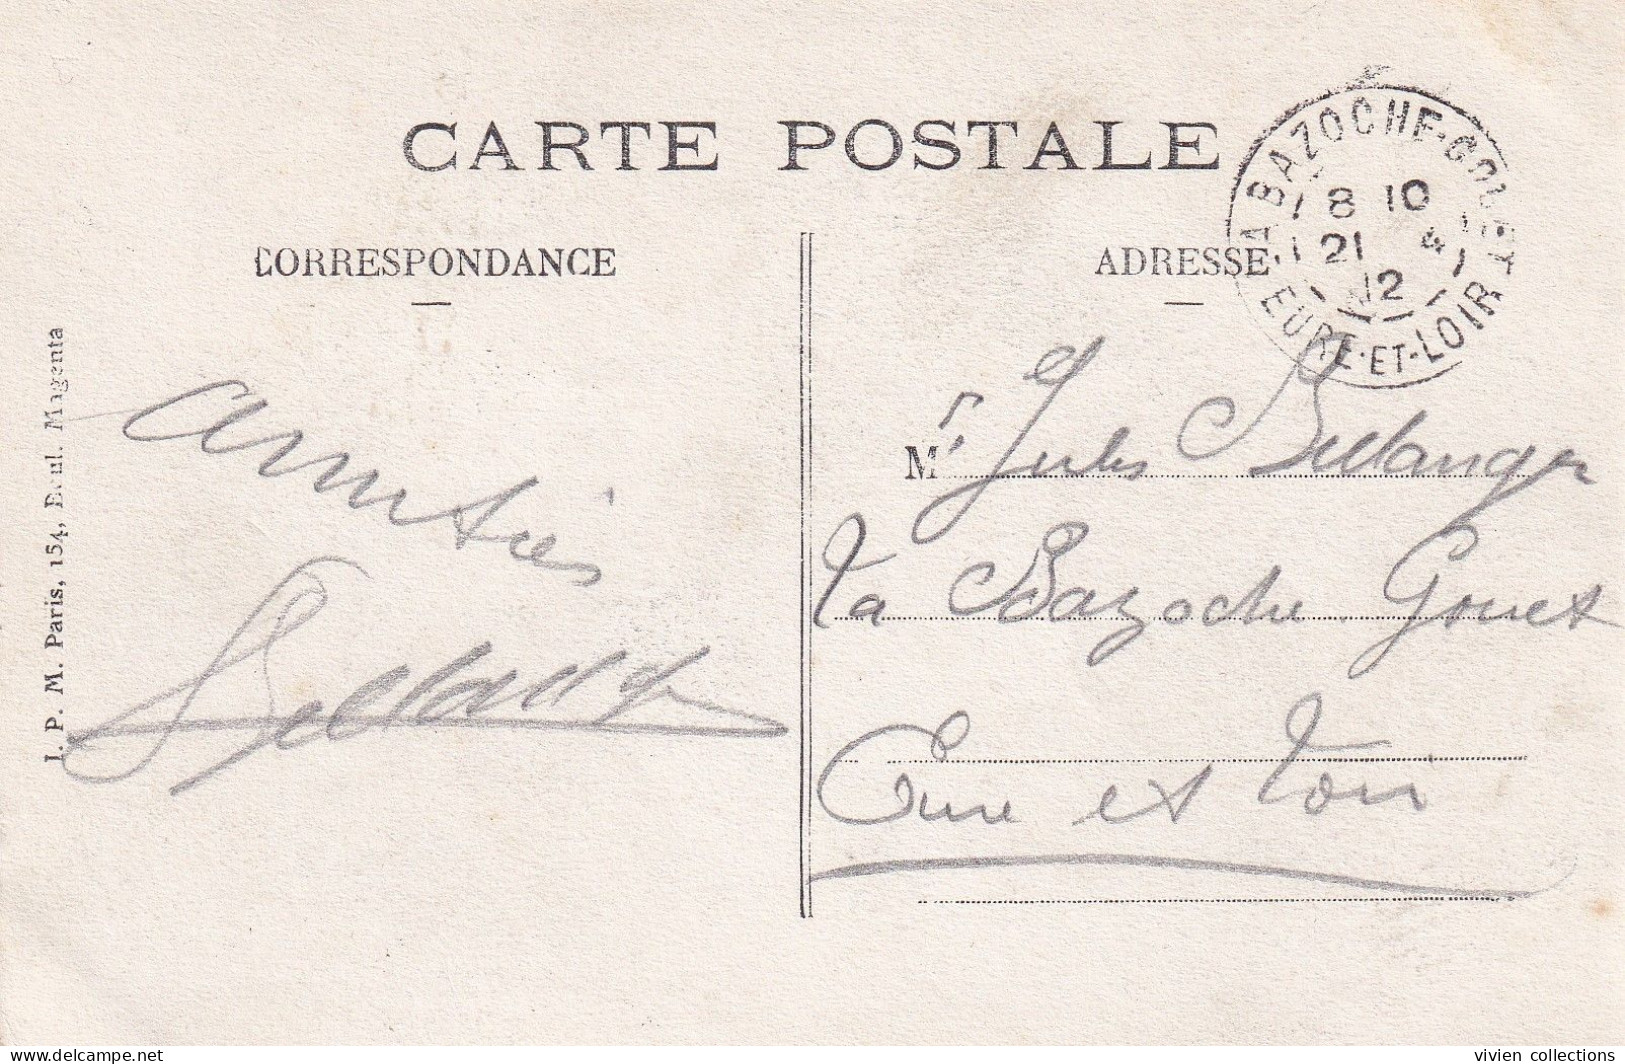 CARTE POSTALE
CORRESPONDANCE
ADRESSE
LA BAZOCHE-GOUET
8 10
21 4
12
EURE-ET-LOIR
J. P. M. Paris, 154, Boul. Magenta
amitiés
Mr. Jules
La Bazoche Gouet
Eure et Loir
vivien collections